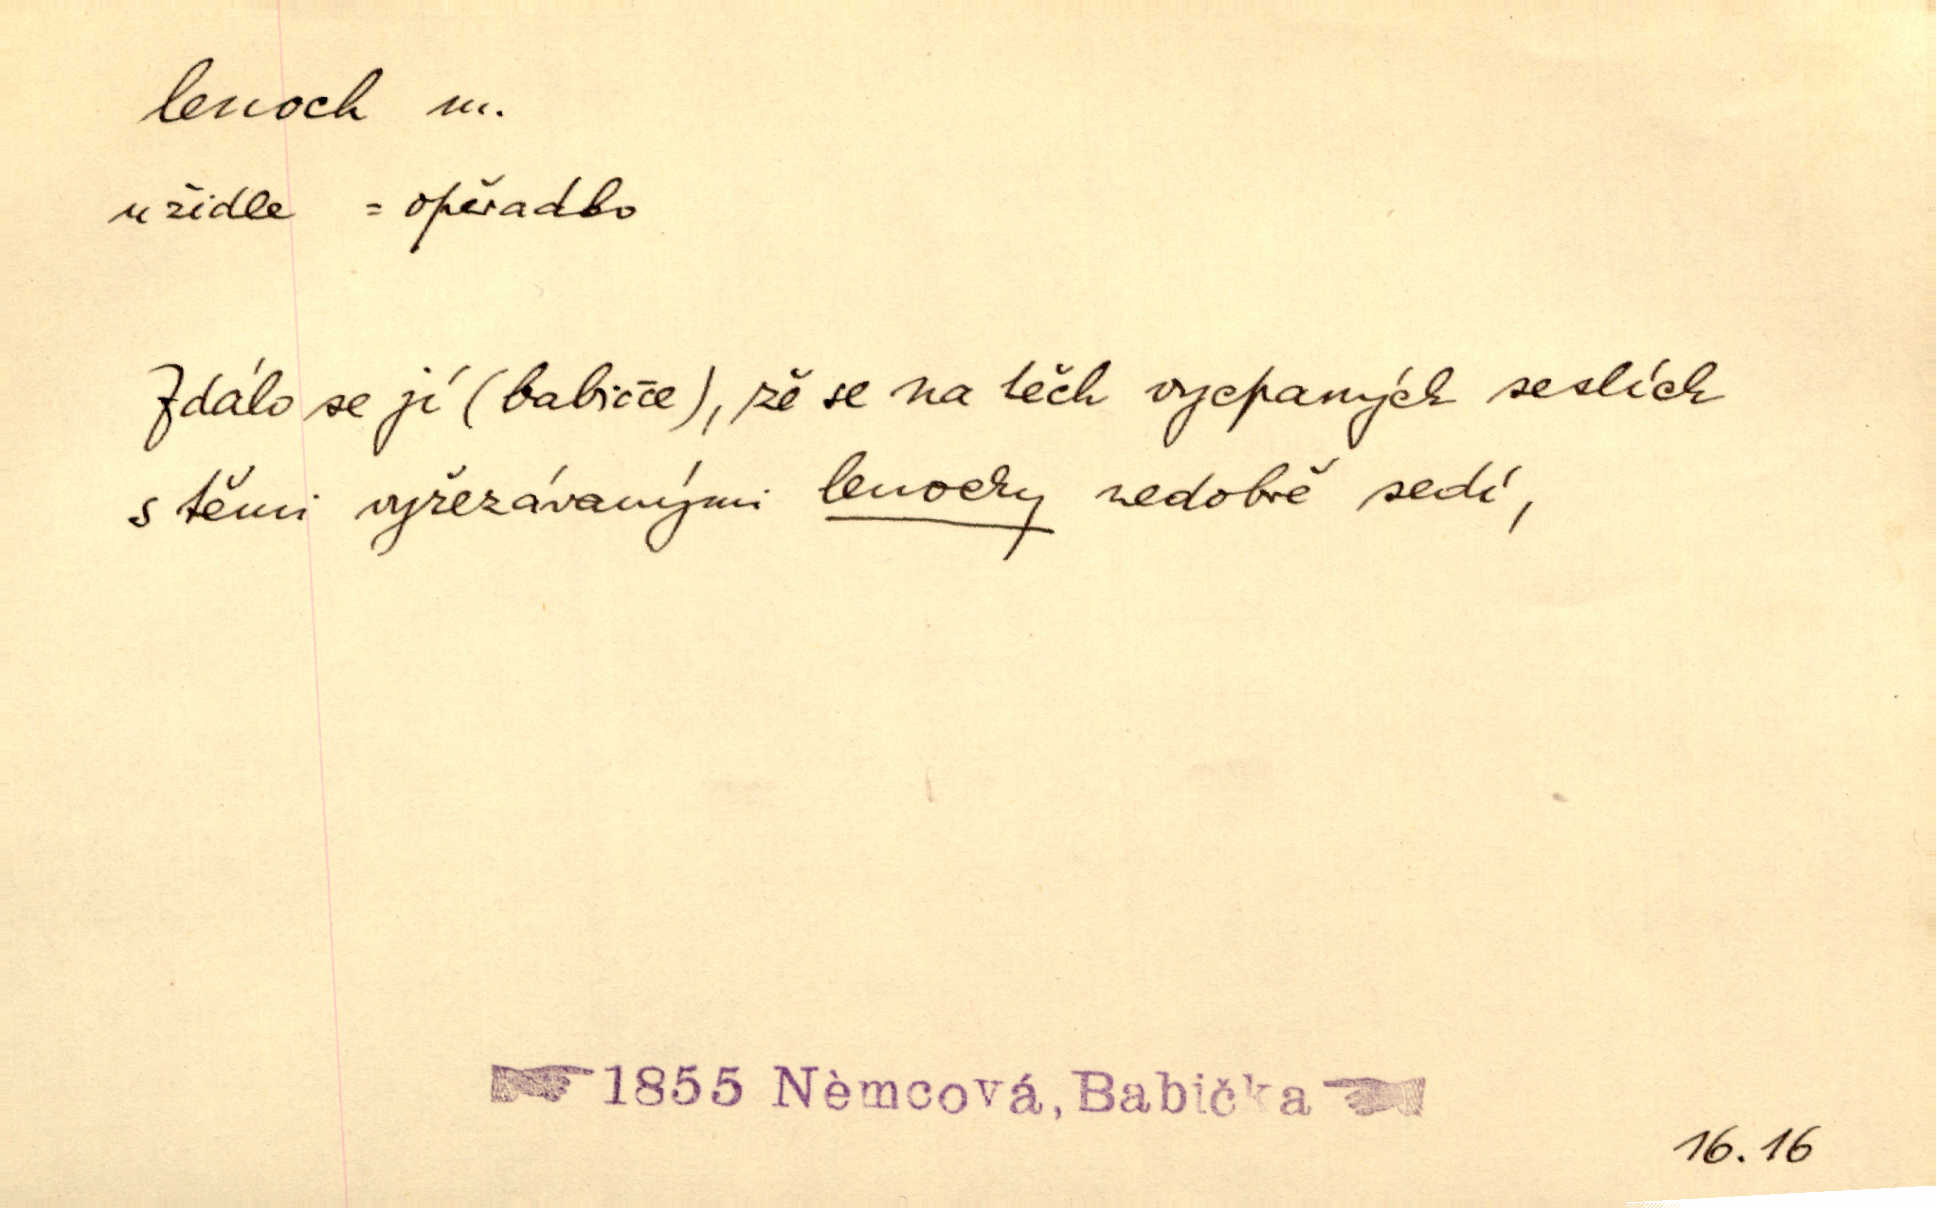 lenoch m.
u židle = opěradlo
Zdálo se jí (babičce), že se na těch vycpaných seslích
s těmi vyřezávanými lenochy nedobře sedí,
1855 Nèmcová, Babička
16.16